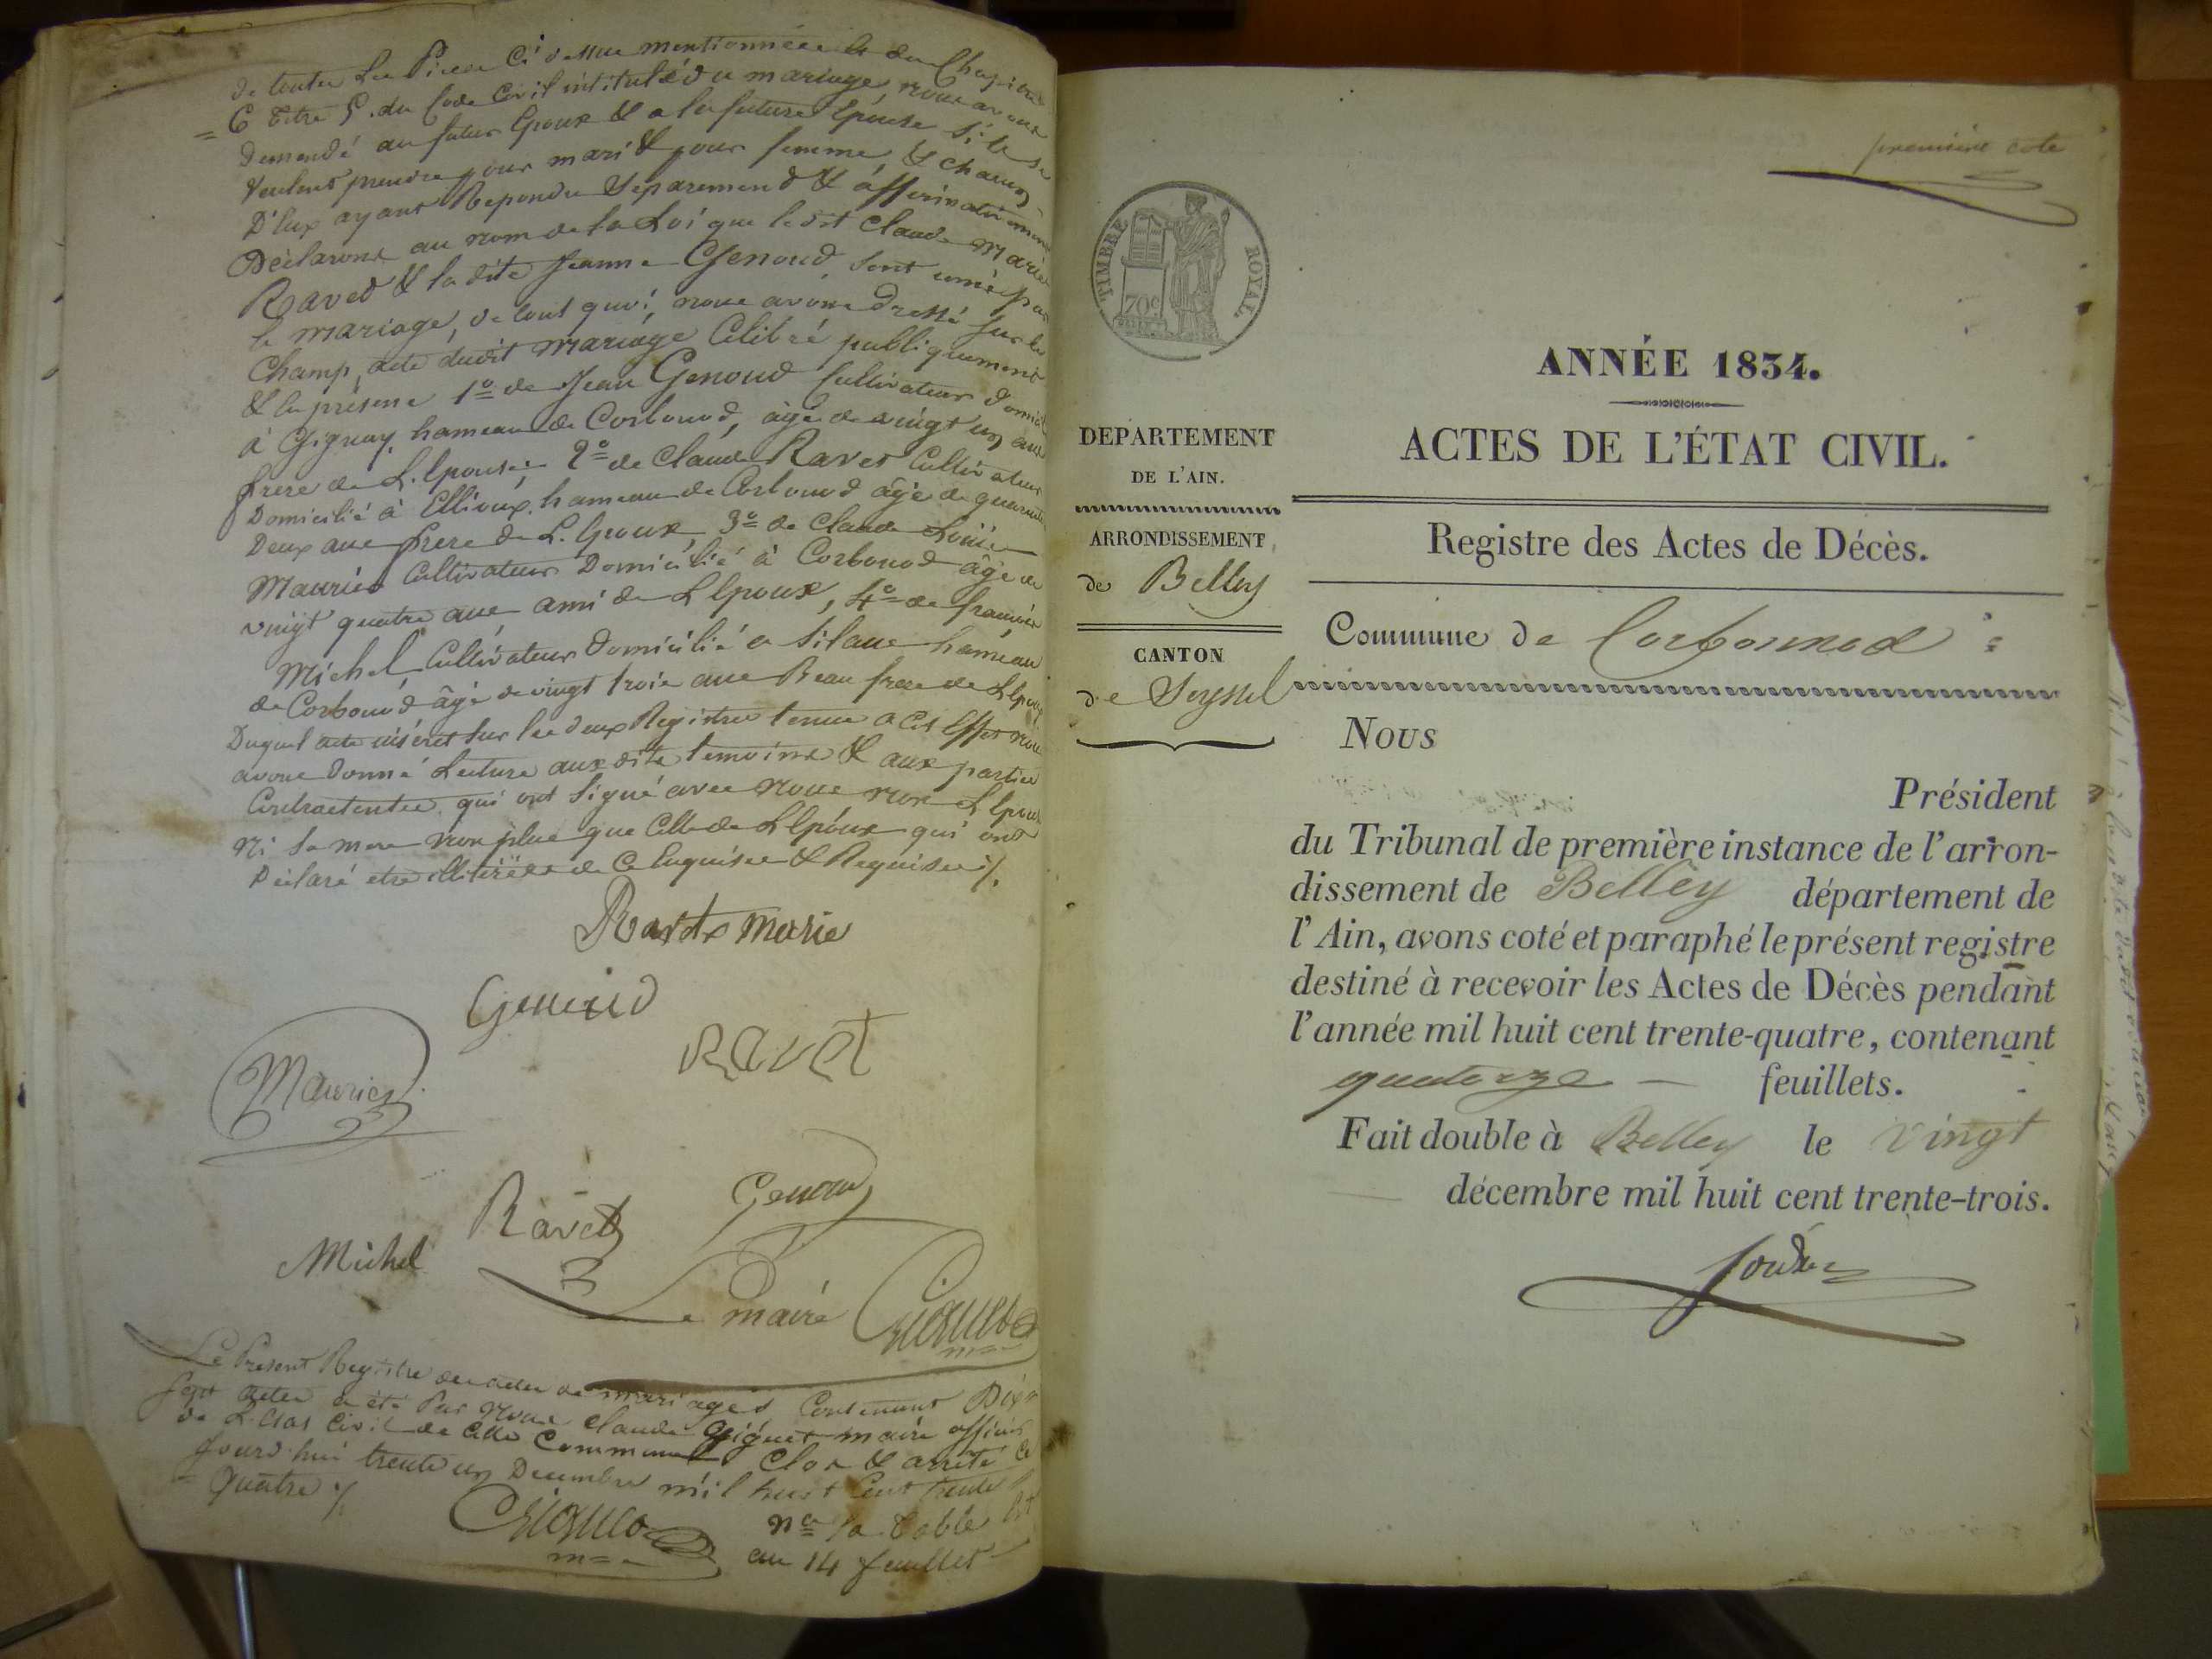 de toutes les Pieces Ci dessus mentionnées & du Chapitre
6 titre 5. du Code Civil intitulé du mariage, nous avons
Demandé au futur Epoux & a la future Epouse S'ils se
Veulent prendre pour mari & pour femme, & chacun
D'Eux ayant Repondu Séparement & affirmativement
Déclarons au nom de la Loi que ledit Claude Marie
Raved & la dite Jeanne Genoud, sont unis par
le mariage, de tout quoi, nous avons Dressé sur le
Champ, acte dudit mariage Célébré publiquement
& en présence 1º de Jean Genoud Cultivateur domicilié
à Gignay, hameau de Corbonod, âgé de vingt un ans
frere de L'Epouse; 2º de Claude Ravet Cultivateur
Domicilié à Ellioux, hameau de Corbonod âgé de quarante
Deux ans frere de L'Epoux, 3º de Claude Louis
Mauries Cultivateur Domicilié à Corbonod âgé de
vingt quatre ans ami de L'Epoux, 4º de françois
Michel, Cultivateur domicilié a Silans hameau
de Corbonod âgé de vingt trois ans Beau frere de L'Epoux
Duquel acte inséret sur les deux Registres tenus a cet Effet nous
avons Donné Lecture aux dits temoins & aux parties
Contractentes, qui ont Signé avec nous non L'Epouse
Ni sa mere non plus que Celle de L'Epoux qui ont
Déclaré etre illitérées de Ce Enquises & Requises ./.
Ravet Marie
Genoud
Ravet
Mauries
Ravet
Genoud
Michel
Le maire Gignet
Le Present Registre des actes de mariages Contenant Dix
Sept actes a été Par Nous Claude Gignet maire officier
de L'Etat Civil de cette Commune Clos & arrêté Ce
Jourd'hui trente un Decembre mil huit Cent trente
= Quatre ./.
Gignet
m=e
nª la table est
au 14 feuillet
première cote
TIMBRE ROYAL
70c
ANNÉE 1834.
ACTES DE L'ÉTAT CIVIL.
DEPARTEMENT
DE L'AIN.
ARRONDISSEMENT
de Belley
CANTON
de Seyssel
Registre des Actes de Décès.
Commune de Corbonod
Nous
Président
du Tribunal de première instance de l'arron-
dissement de Belley département de
l'Ain, avons coté et paraphé le présent registre
destiné à recevoir les Actes de Décès pendant
l'année mil huit cent trente-quatre, contenant
quatorze feuillets.
Fait double à Belley le vingt
décembre mil huit cent trente-trois.